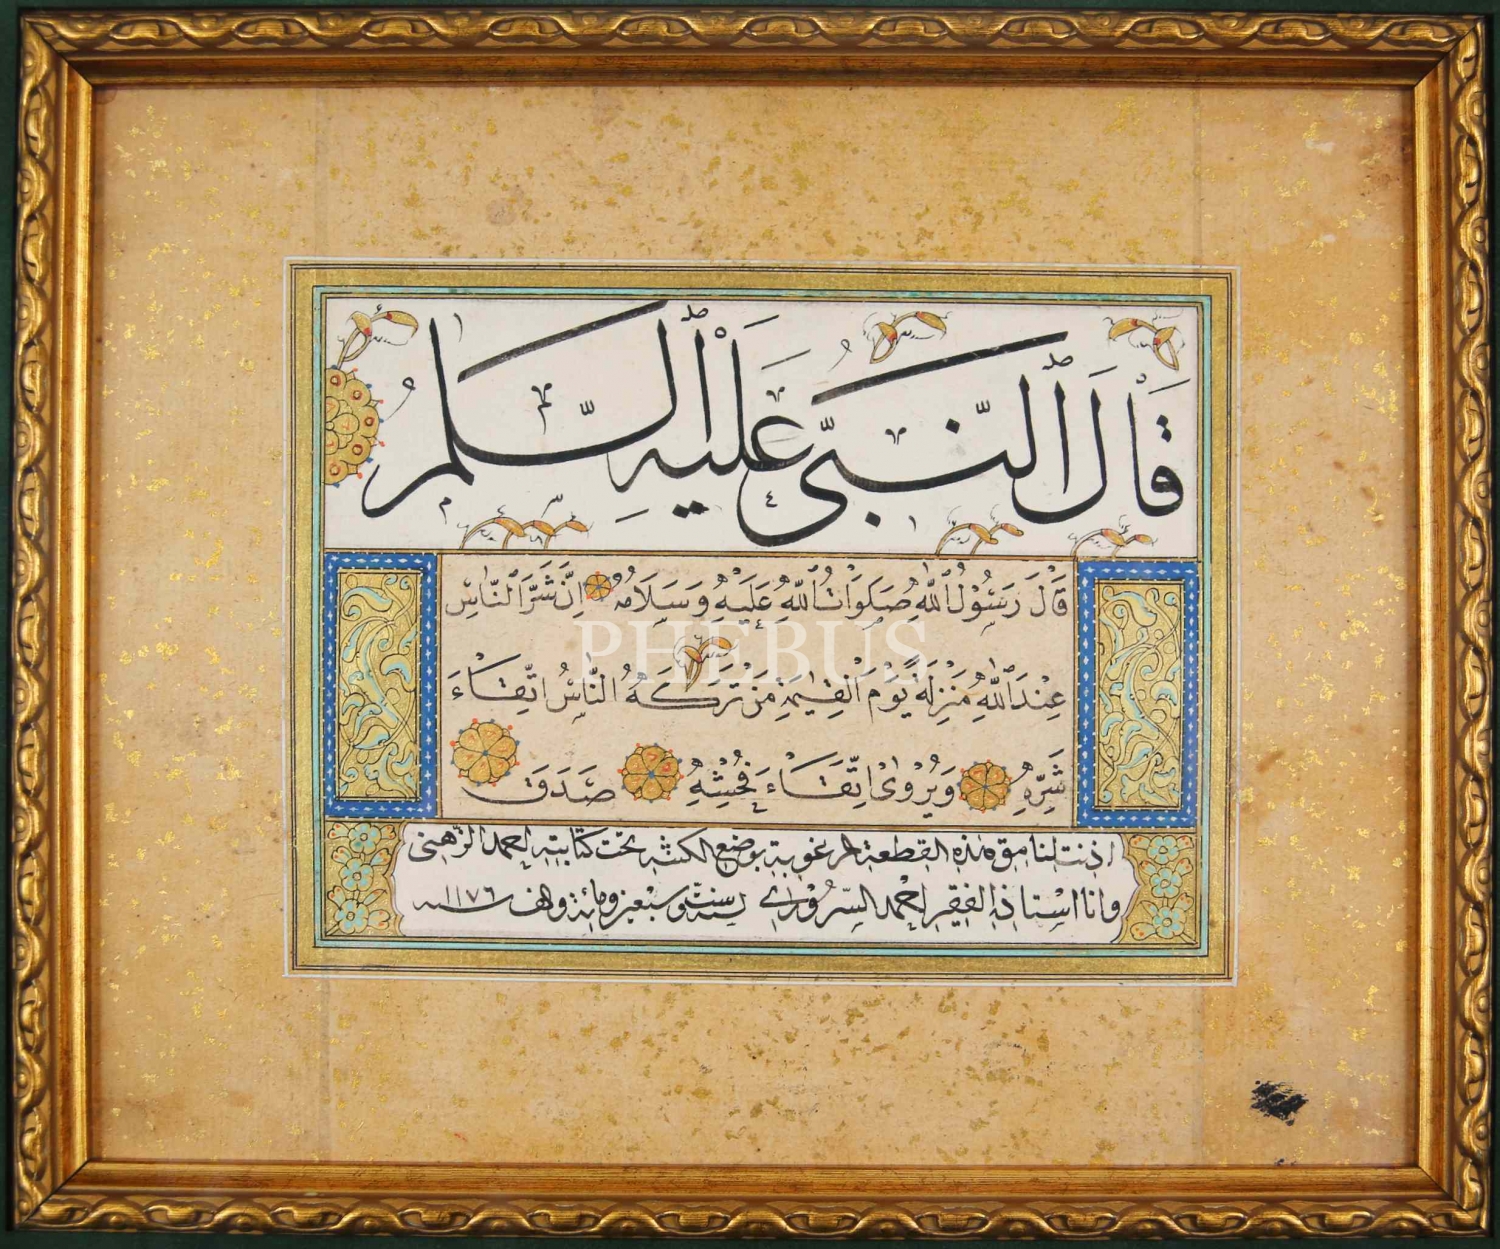 قَالَ النَّبِيُّ عَلَيْهِ السَّلٰمُ
قَالَ رَسُولُ اللّٰهِ صَلَوَاتُ اللّٰهِ عَلَيْهِ وَسَلَامُهُ اِنَّ شَرَّ النَّاسِ
PHEBUS
عِنْدَ اللّٰهِ مَنْزِلَةً يَوْمَ الْقِيٰمَةِ مَنْ تَرَكَهُ النَّاسُ اتِّقَاءَ
شَرِّهِ وَيُرْوٰى اتِّقَاءَ فُحْشِهِ صَدَقَ
اذنت لنامق هذه القطعة المرغوبة بوضع الكتبة تحت كتابته احمد الزهني
وانا استاذه الفقير احمد السروري لسنة ست وسبعين ومائة والف سنه ١١٧٦